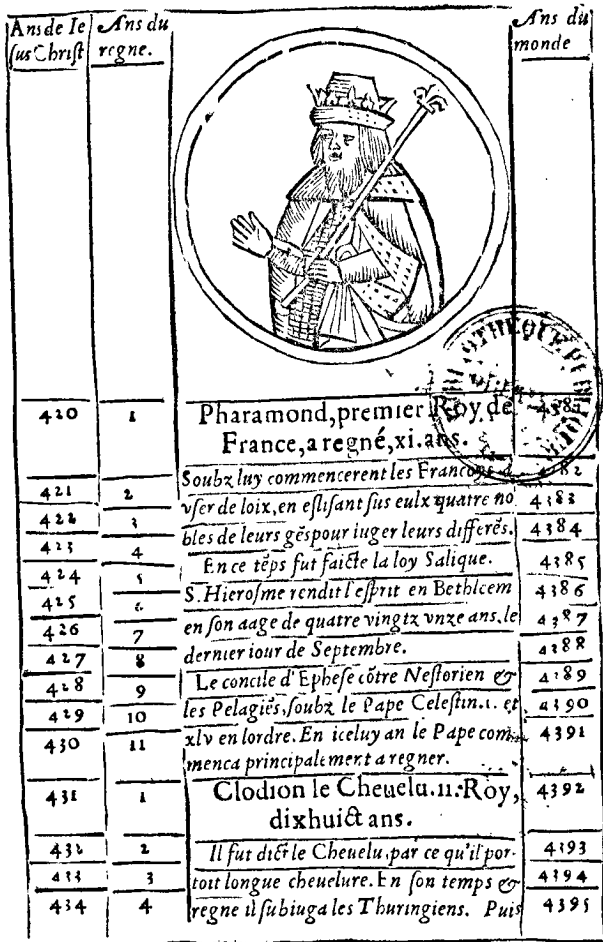 Ans de Ie
ſus Chriſt
Ans du
regne.
Ans du
monde
420 1 Pharamond, premier Roy de
France, a regné, xi. ans.
Soubz luy commencerent les 4382
421 2 vſer de loix, en eſliſant ſus eulx quatre no 4383
422 3 bles de leurs gẽs pour iuger leurs differẽs. 4384
423 4 En ce tẽps fut faicte la loy Salique. 4385
424 5 S. Hieroſme rendit l'eſprit en Bethleem 4386
425 6 en ſon aage de quatre vingtz vnze ans, le 4387
426 7 dernier iour de Septembre. 4388
427 8 Le concile d'Epheſe cõtre Neſtorien & 4389
428 9 les Pelagiẽs, ſoubz le Pape Celeſtin. 1. et 4390
429 10 xlv en lordre. En iceluy an le Pape com 4391
430 11 menca principalement a regner.
431 1 Clodion le Cheuelu. 11. Roy, 4392
dixhuict ans.
432 2 Il fut dict le Cheuelu, par ce qu'il por- 4393
433 3 toit longue cheuelure. En ſon temps & 4394
434 4 regne il ſubiuga les Thuringiens. Puis 4395